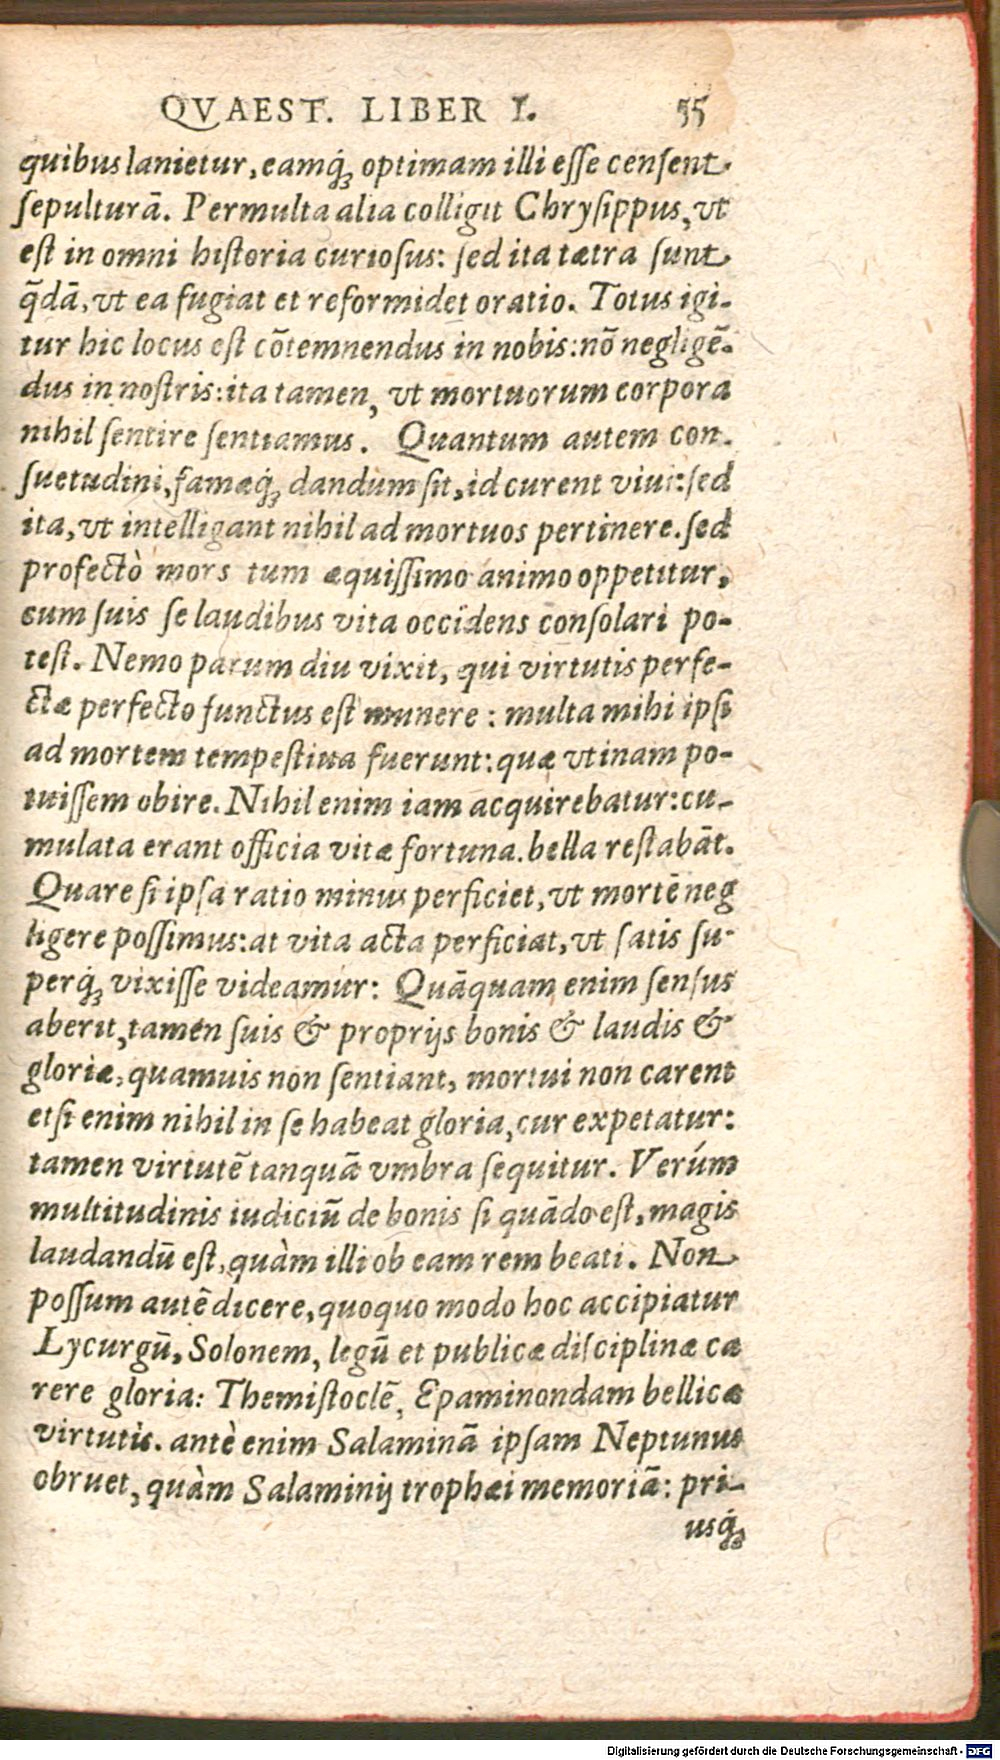 QVAEST. LIBER I. 55
quibus lanietur, eamq́ꝫ optimam illi eſſe cenſent
ſepulturā. Permulta alia colligit Chryſippus, vt
eſt in omni hiſtoria curioſus: ſed ita tætra ſunt
q̄dā, vt ea fugiat et reformidet oratio. Totus igi-
tur hic locus eſt cōtemnendus in nobis: nō negligē-
dus in noſtris: ita tamen, vt mortuorum corpora
nihil ſentire ſentiamus. Quantum autem con-
ſuetudini, famæq́ꝫ dandum ſit, id curent viui: ſed
ita, vt intelligant nihil ad mortuos pertinere. ſed
profectò mors tum æquiſſimo animo oppetitur,
cum ſuis ſe laudibus vita occidens conſolari po-
teſt. Nemo parum diu vixit, qui virtutis perfe-
ctæ perfecto functus eſt munere: multa mihi ipſi
ad mortem tempeſtiua fuerunt: quæ vtinam po-
tuiſſem obire. Nihil enim iam acquirebatur: cu-
mulata erant officia vitæ fortuna. bella reſtabāt.
Quare ſi ipſa ratio minus perficiet, vt mortē neg
ligere poſſimus: at vita acta perficiat, vt ſatis ſu-
perq́ꝫ vixiſſe videamur: Quāquam enim ſenſus
aberit, tamen ſuis & proprijs bonis & laudis &
gloriæ, quamuis non ſentiant, mortui non carent
etſi enim nihil in ſe habeat gloria, cur expetatur:
tamen virtutē tanquā vmbra ſequitur. Verúm
multitudinis iudiciū de bonis ſi quādo eſt, magis
laudandū eſt, quàm illi ob eam rem beati. Non
poſſum autē dicere, quoquo modo hoc accipiatur
Lycurgū, Solonem, legū et publicæ diſciplinæ ca
rere gloria: Themiſtoclē, Epaminondam bellicæ
virtutis. antè enim Salaminā ipſam Neptunus
obruet, quàm Salaminij trophæi memoriā: pri-
usq́ꝫ
Digitalisierung gefördert durch die Deutsche Forschungsgemeinschaft - DFG